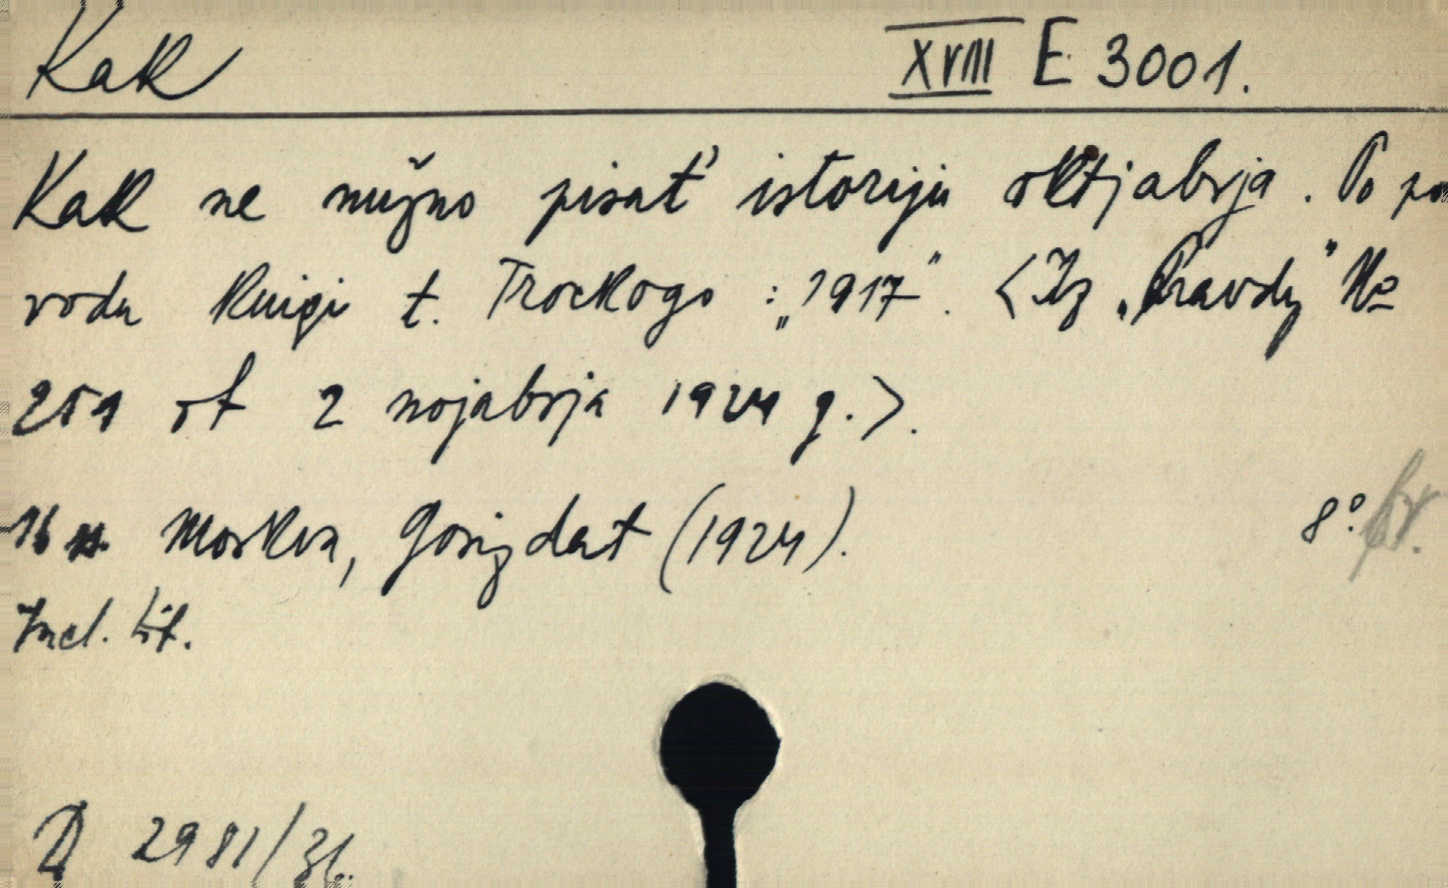 Kak XVIII E 3001.
Kak ne nužno pisat' istoriju oktjabrja. Po po
vodu knigi t. Trockogo : „1917". <Iz „Pravdy" No
251 ot 2 nojabrja 1924 g.>.
16 s. Moskva, Gosizdat (1924). 8°.
Incl. lit.
D 2981/31.